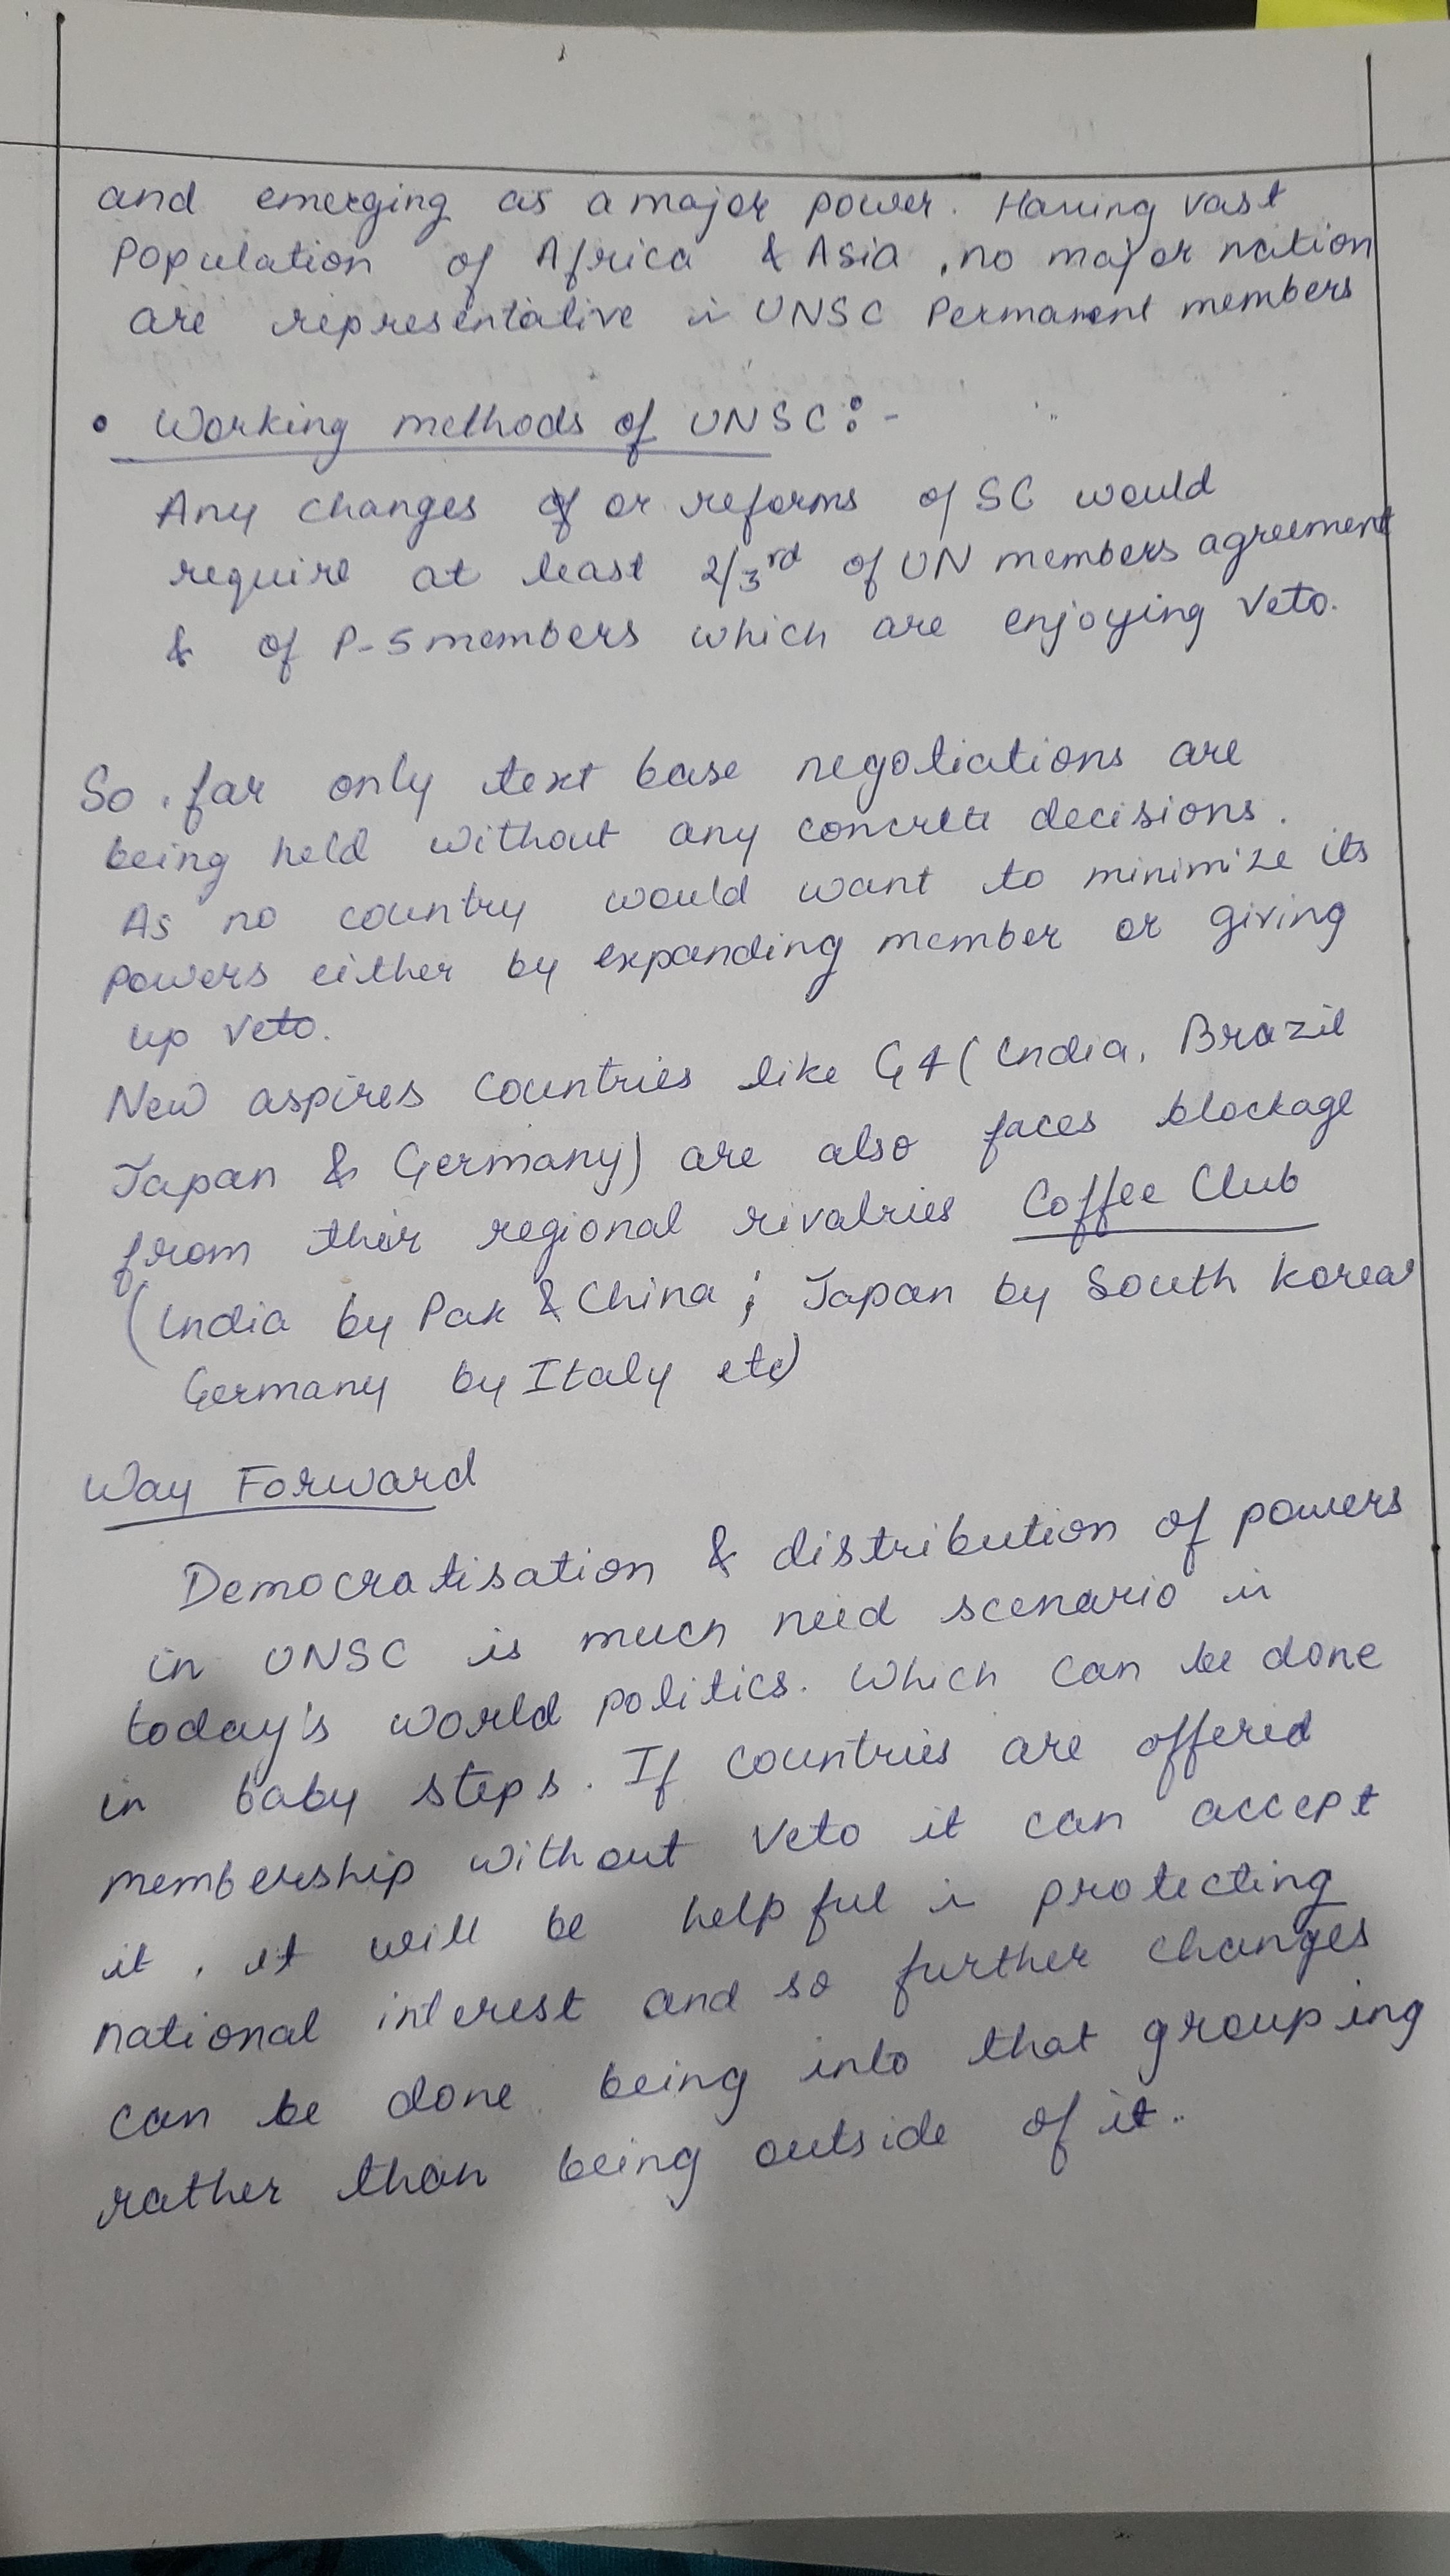 and emerging as a major power. Having vast
population of Africa & Asia, no major nation
are representative in UNSC Permanent members
• Working methods of UNSC:-
Any changes of or reforms of SC would
require at least 2/3rd of UN members agreement
& of P-5 members which are enjoying Veto.
So, far only text base negotiations are
being held without any concrete decisions.
As no country would want to minimize its
powers either by expanding member or giving
up veto.
New aspires countries like G4 (India, Brazil
Japan & Germany) are also faces blockage
from their regional rivalries Coffee Club
(India by Pak & China; Japan by South Korea
Germany by Italy etc)
Way Forward
Democratisation & distribution of powers
in UNSC is much need scenario in
today's world politics. Which can be done
in baby steps. If countries are offered
membership without Veto it can accept
it, it will be helpful in protecting
national interest and so further changes
can be done being into that grouping
rather than being outside of it..